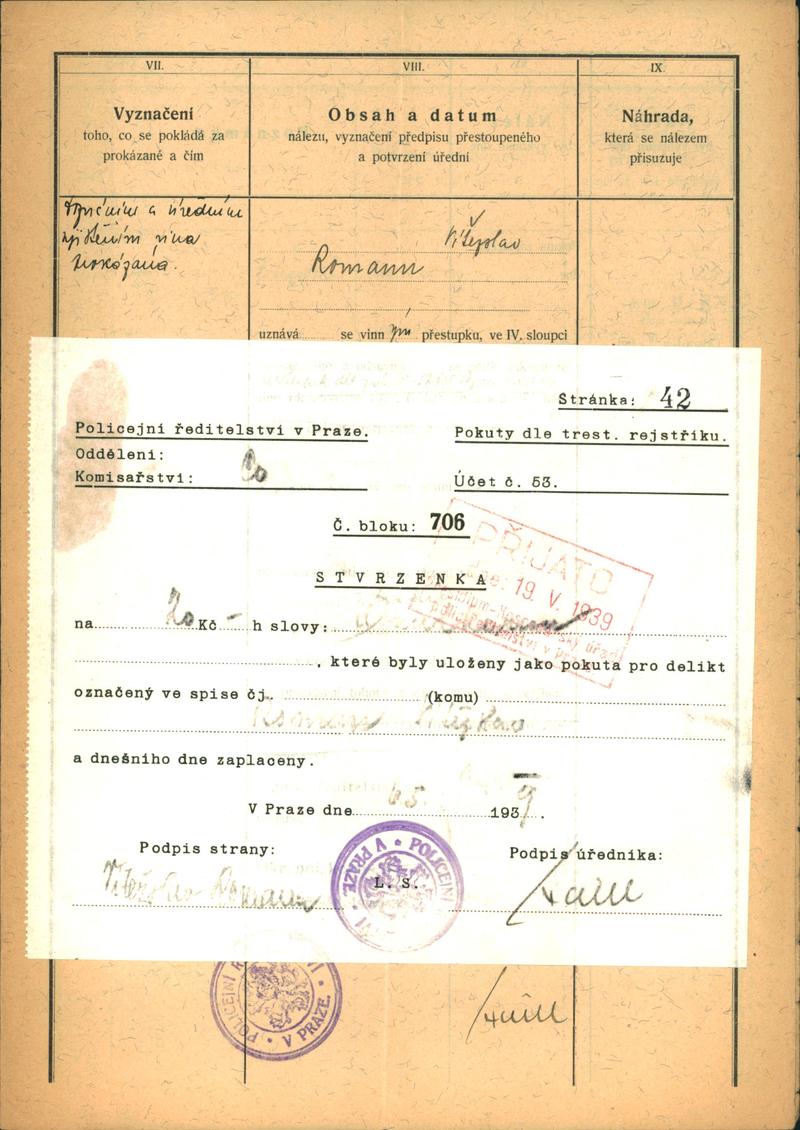 VII.
VIII.
IX.
Vyznačení
toho, co se pokládá za
prokázané a čím
Obsah a datum
nálezu, vyznačení předpisu přestoupeného
a potvrzení úřední
Náhrada,
která se nálezem
přisuzuje
a úředním
vina
prokázána.
Vítězslav
Romann
uznává se vinn ým přestupku, ve IV. sloupci
Stránka: 42
Policejní ředitelství v Praze.
Pokuty dle trest. rejstříku.
Oddělení:
Komisařství: Co
Účet č. 53.
Č. bloku: 706
PŘIJATO
dne: 19. V. 1939
STVRZENKA
na 20 Kč - h slovy:
, které byly uloženy jako pokuta pro delikt
označený ve spise čj. (komu)
Romann
a dnešního dne zaplaceny.
V Praze dne 1939.
Podpis strany:
Podpis úředníka:
Vítězslav Romann
L. S.
POLICEJNÍ
V PRAZE
POLICEJNÍ
V PRAZE.